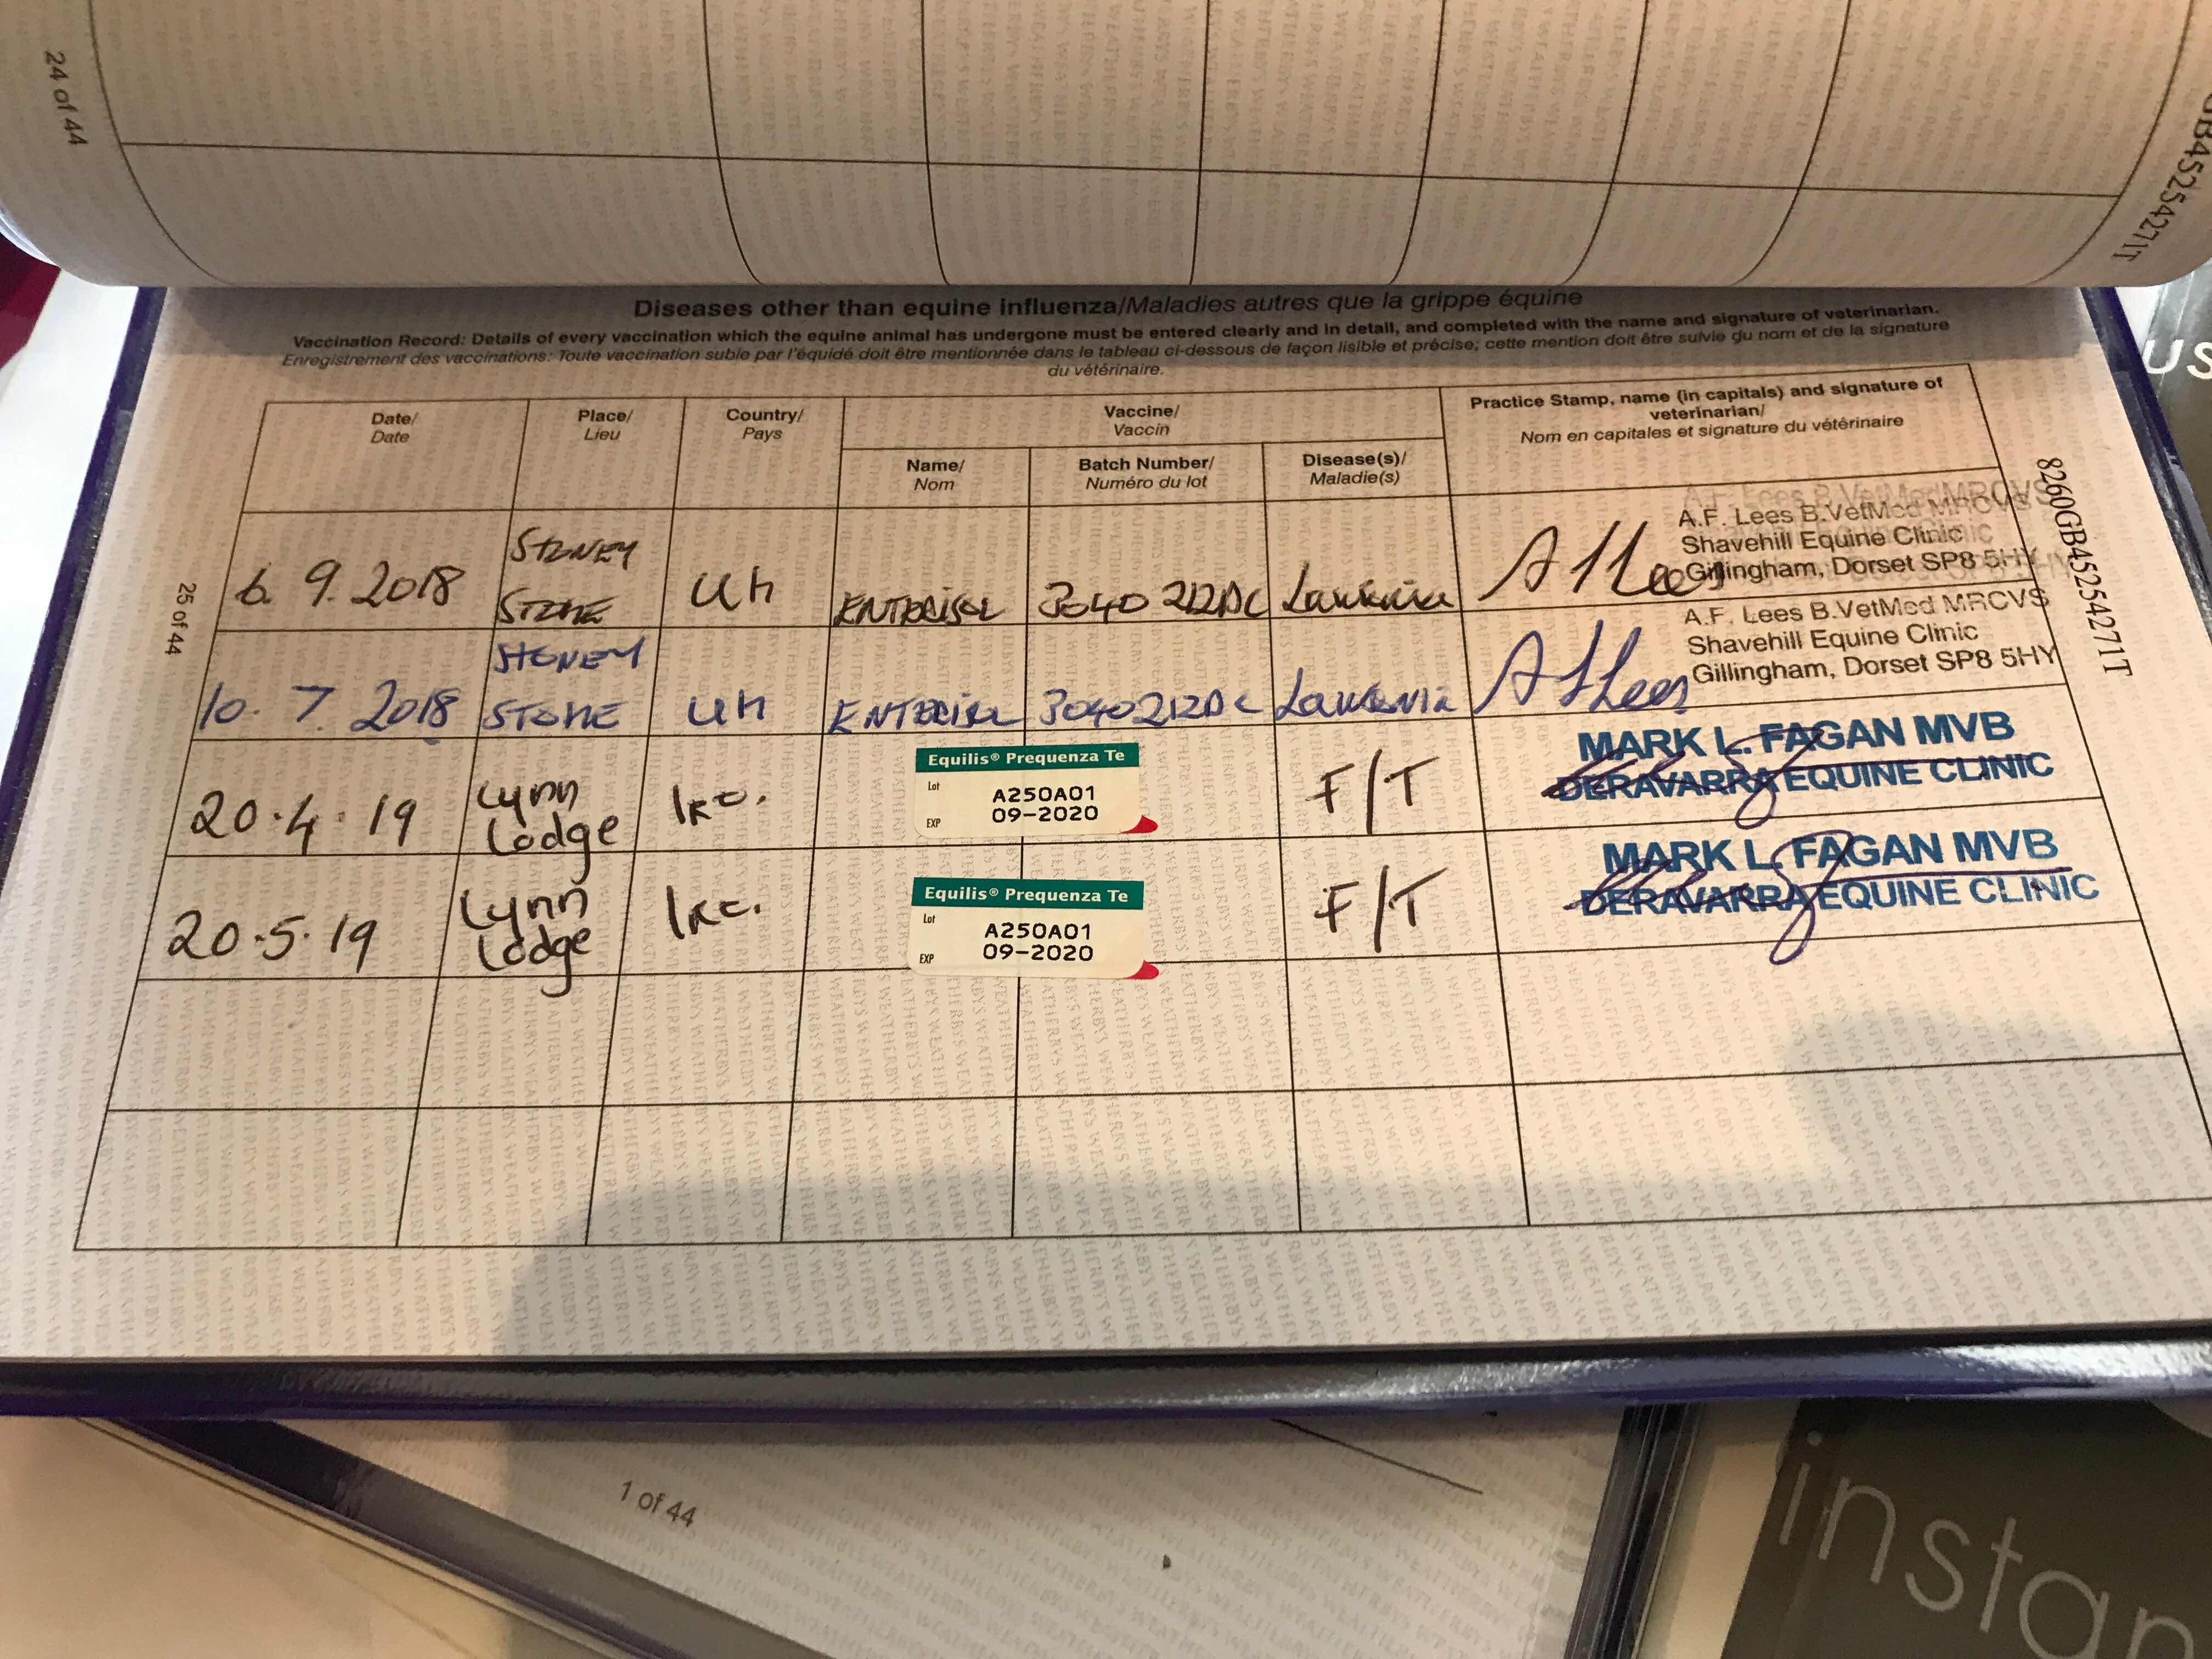 24 of 44
GB45254271T
Diseases other than equine influenza/Maladies autres que la grippe équine
Vaccination Record: Details of every vaccination which the equine animal has undergone must be entered clearly and in detail, and completed with the name and signature of veterinarian.
Enregistrement des vaccinations: Toute vaccination subie par l'équidé doit être mentionnée dans le tableau ci-dessous de façon lisible et précise; cette mention doit être suivie du nom et de la signature
du vétérinaire.
Date/ Place/ Country/ Vaccine/ Practice Stamp, name (in capitals) and signature of
Date Lieu Pays Vaccin veterinarian/
Nom en capitales et signature du vétérinaire
Name/ Batch Number/ Disease(s)/
Nom Numéro du lot Maladie(s)/
25 of 44
8260GB45254271T
6. 9. 2018 STONEY STONE UK ENTERISOL 3040212DC Lawsonia A F Lees
A.F. Lees B.VetMed MRCVS
Shavehill Equine Clinic
Gillingham, Dorset SP8 5HY
10. 7 2018 STONEY STONE UK ENTERISOL 3040212DC Lawsonia A F Lees
A.F. Lees B.VetMed MRCVS
Shavehill Equine Clinic
Gillingham, Dorset SP8 5HY
20.4.19 Lynn Lodge IRE. F/T
Equilis® Prequenza Te
Lot A250A01
EXP 09-2020
MARK L. FAGAN MVB
DERAVARRA EQUINE CLINIC
20.5.19 Lynn Lodge IRE. F/T
Equilis® Prequenza Te
Lot A250A01
EXP 09-2020
MARK L. FAGAN MVB
DERAVARRA EQUINE CLINIC
1 of 44
us
instan